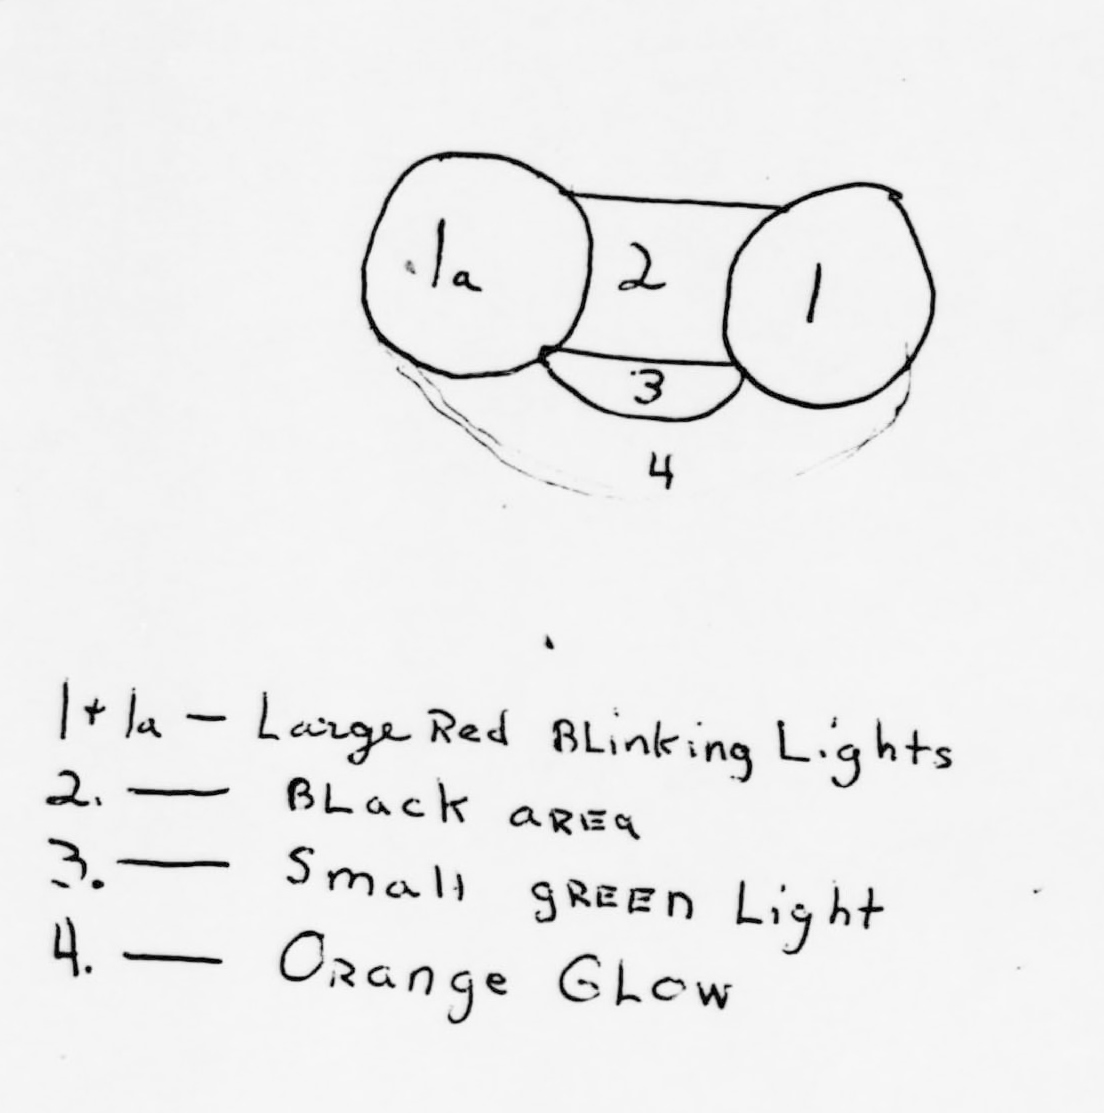 1a
2
1
3
4
1 + 1a — Large Red BLinking Lights
2. — BLack aREa
3. — Small gREEn Light
4. — ORange GLow